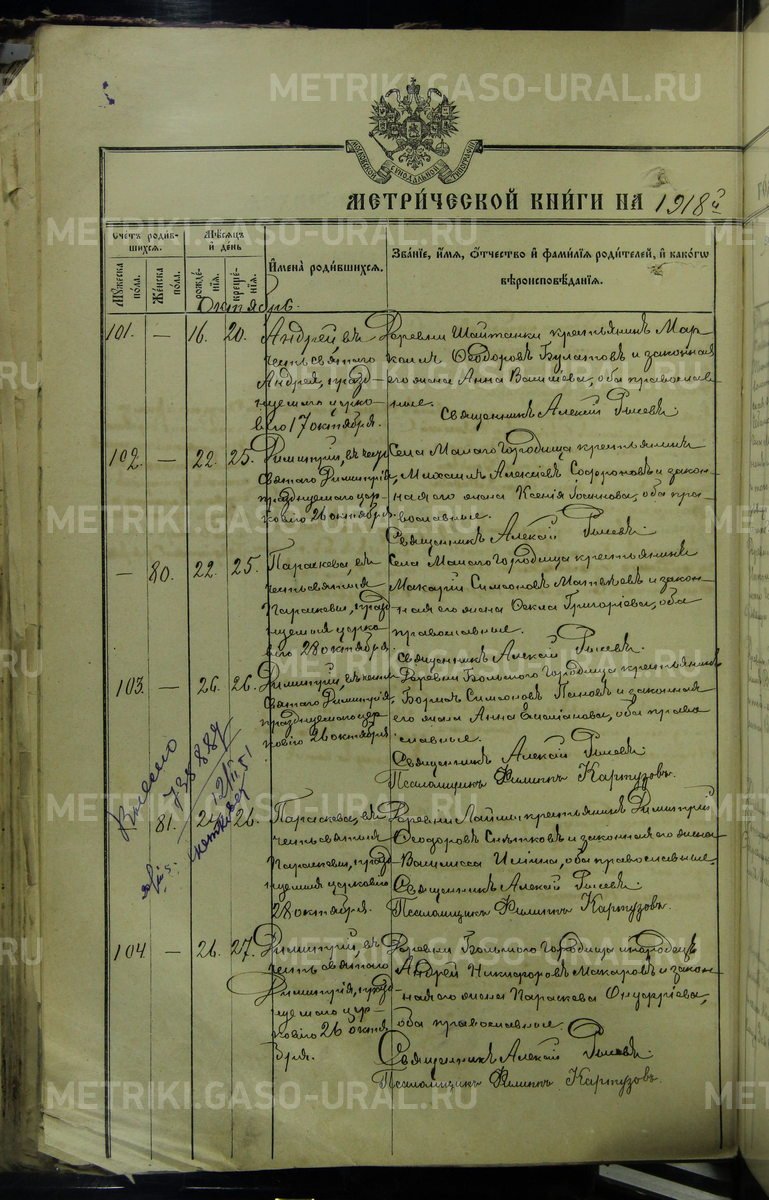 METRIKI.GASO-URAL.RU
МОСКОВСКОЙ СѴНОДАЛЬНОЙ ТИПОГРАФІИ
МЕТРИ́ЧЕСКОЙ КНИ́ГИ НА 1918 й
Сче́тъ роди́в-
шихся.
Мѣ́сяцъ
и҆ де́нь
Му́жеска
по́ла.
Же́нска
по́ла.
рожде́-
нїѧ.
креще́-
нїѧ.
И҆мена̀ роди́вшихся.
Зва́нїе, и҆́мя, ѻ҆́тчество и҆ фами́лїя роди́телей, и҆ како́гѡ
вѣроисповѣ́данїя.
Октябрь.
101. — 16. 20.
Андрей, въ
честь святаго
Андрея, празд-
нуемаго церко-
вію 17 октября.
Деревни Шайтанки крестьянинъ Мар-
Ѳеодоровъ Булатовъ и законная
его жена Анна Васильева, оба православ-
ные.
Священникъ Алексій
102. — 22. 25.
Димитрій, въ честь
Святаго Димитрія,
празднуемаго цер-
ковію 26 октября.
Села Малаго Городища крестьянинъ
Михаилъ Алексіевъ Софроновъ и закон-
ная его жена Ксенія Іоаннова, оба пра-
вославные.
Священникъ Алексій
— 80. 22. 25.
Параскева, въ
честь святыя
Параскевы, празд-
нуемыя церко-
вію 28 октября.
Села Малаго Городища крестьянинъ
Макарій Симеоновъ Матвѣевъ и закон-
ная его жена Ѳекла Григоріева, оба
православные.
Священникъ Алексій
103. — 26. 26.
Димитрій, въ честь
Святаго Димитрія,
празднуемаго цер-
ковію 26 октября
Деревни Большого Городища крестьянинъ
Борисъ Симеоновъ Пановъ и законная
его жена Анна Емиліанова, оба право-
славные.
Священникъ Алексій
Псаломщикъ Филиппъ Картузовъ.
81. 26.
Параскева, въ
честь святыя
Параскевы, празд-
нуемыя церковію
28 октября.
Деревни крестьянинъ Димитрій
Ѳеодоровъ Снѣтковъ и законная его жена
Василисса Иліина, оба православные.
Священникъ Алексій
Псаломщикъ Филиппъ Картузовъ.
104 — 26. 27.
Димитрій, въ
честь святаго
Димитрія, празд-
нуемаго цер-
ковію 26 октя-
бря.
Деревни Большого Городища инородецъ
Андрей Никифоровъ Макаровъ и закон-
ная его жена Параскева Онуфріева,
оба православные.
Священникъ Алексій
Псаломщикъ Филиппъ Картузовъ.